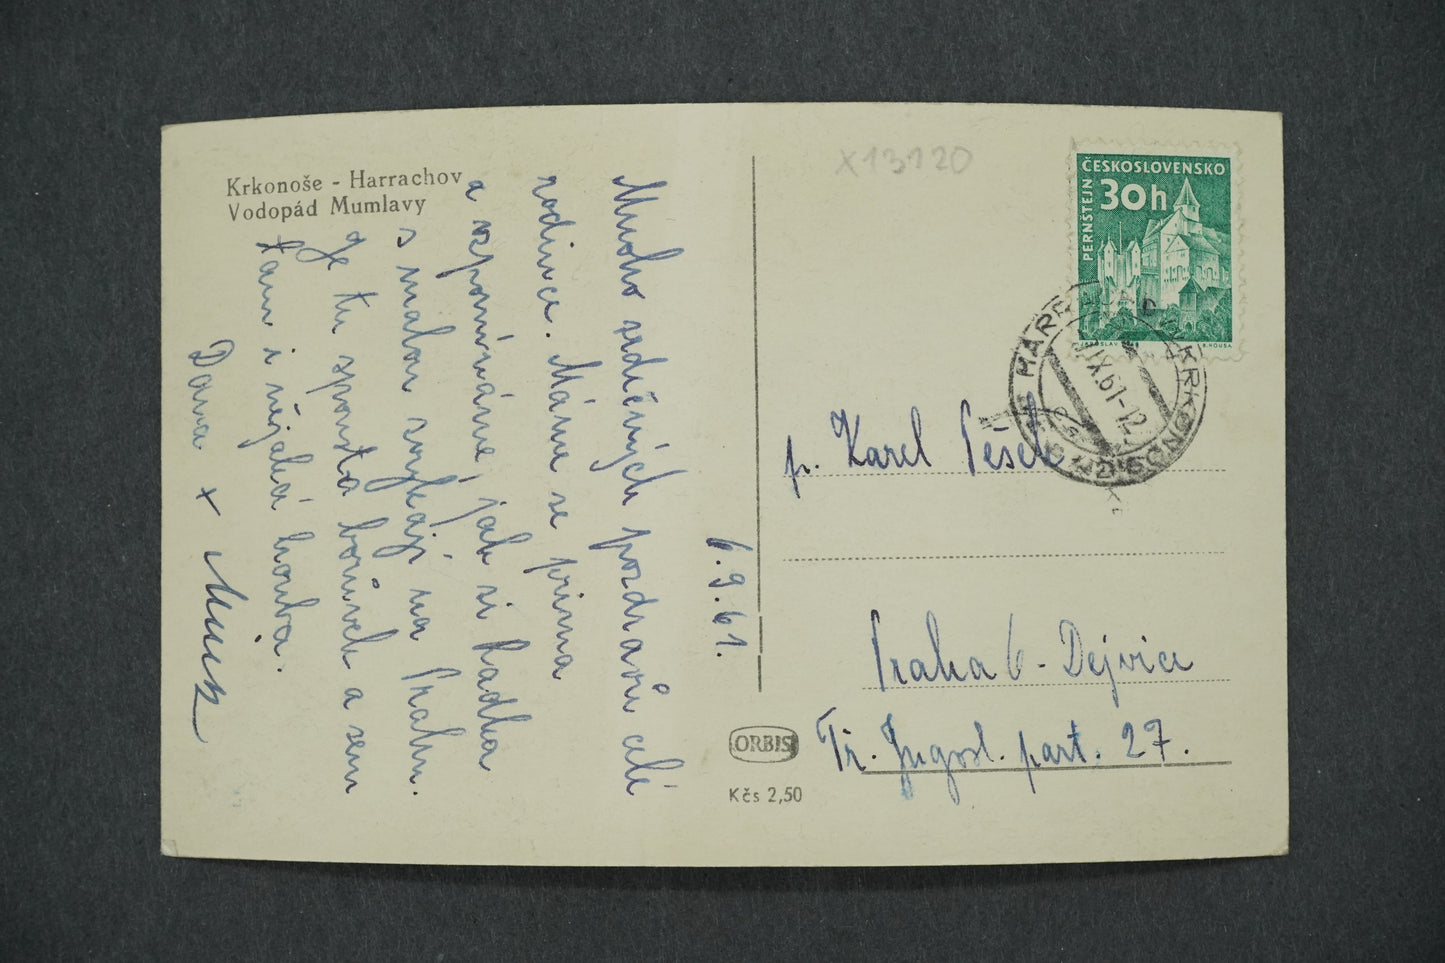 Krkonoše - Harrachov
Vodopád Mumlavy
6.9.61.
Mnoho srdečných pozdravů celé
rodince. Máme se prima
a vzpomínáme, jak si Radka
s malou zvykají na Prahu.
Je tu spousta borůvek a sem
tam i nějaká houba.
Dana +
X13120
ČESKOSLOVENSKO
30h
PERNŠTEJN
IX.61-12
p. Karel Pešek
Praha 6 - Dejvice
Tř. Jugosl. part. 27.
ORBIS
Kčs 2,50